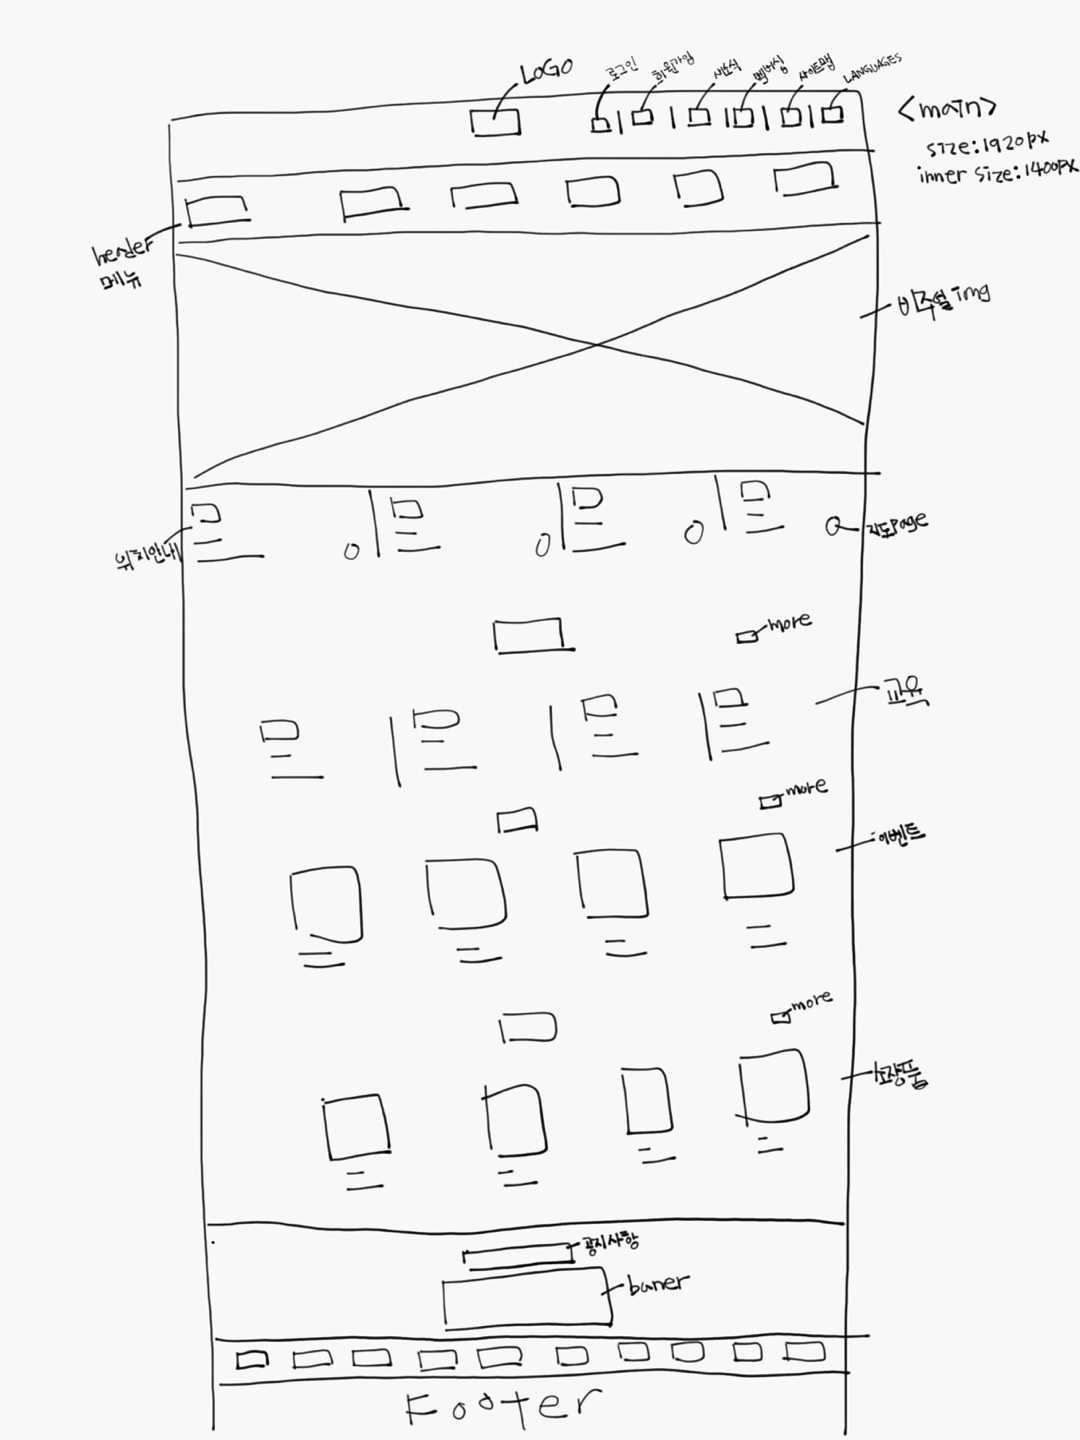 LOGO
로그인
회원가입
새소식
멤버십
사이트맵
LANGUAGES
<main>
size:1920px
inner size:1400px
header
메뉴
비주얼img
위치안내
지도page
more
교육
more
이벤트
more
소장품
공지사항
baner
Footer